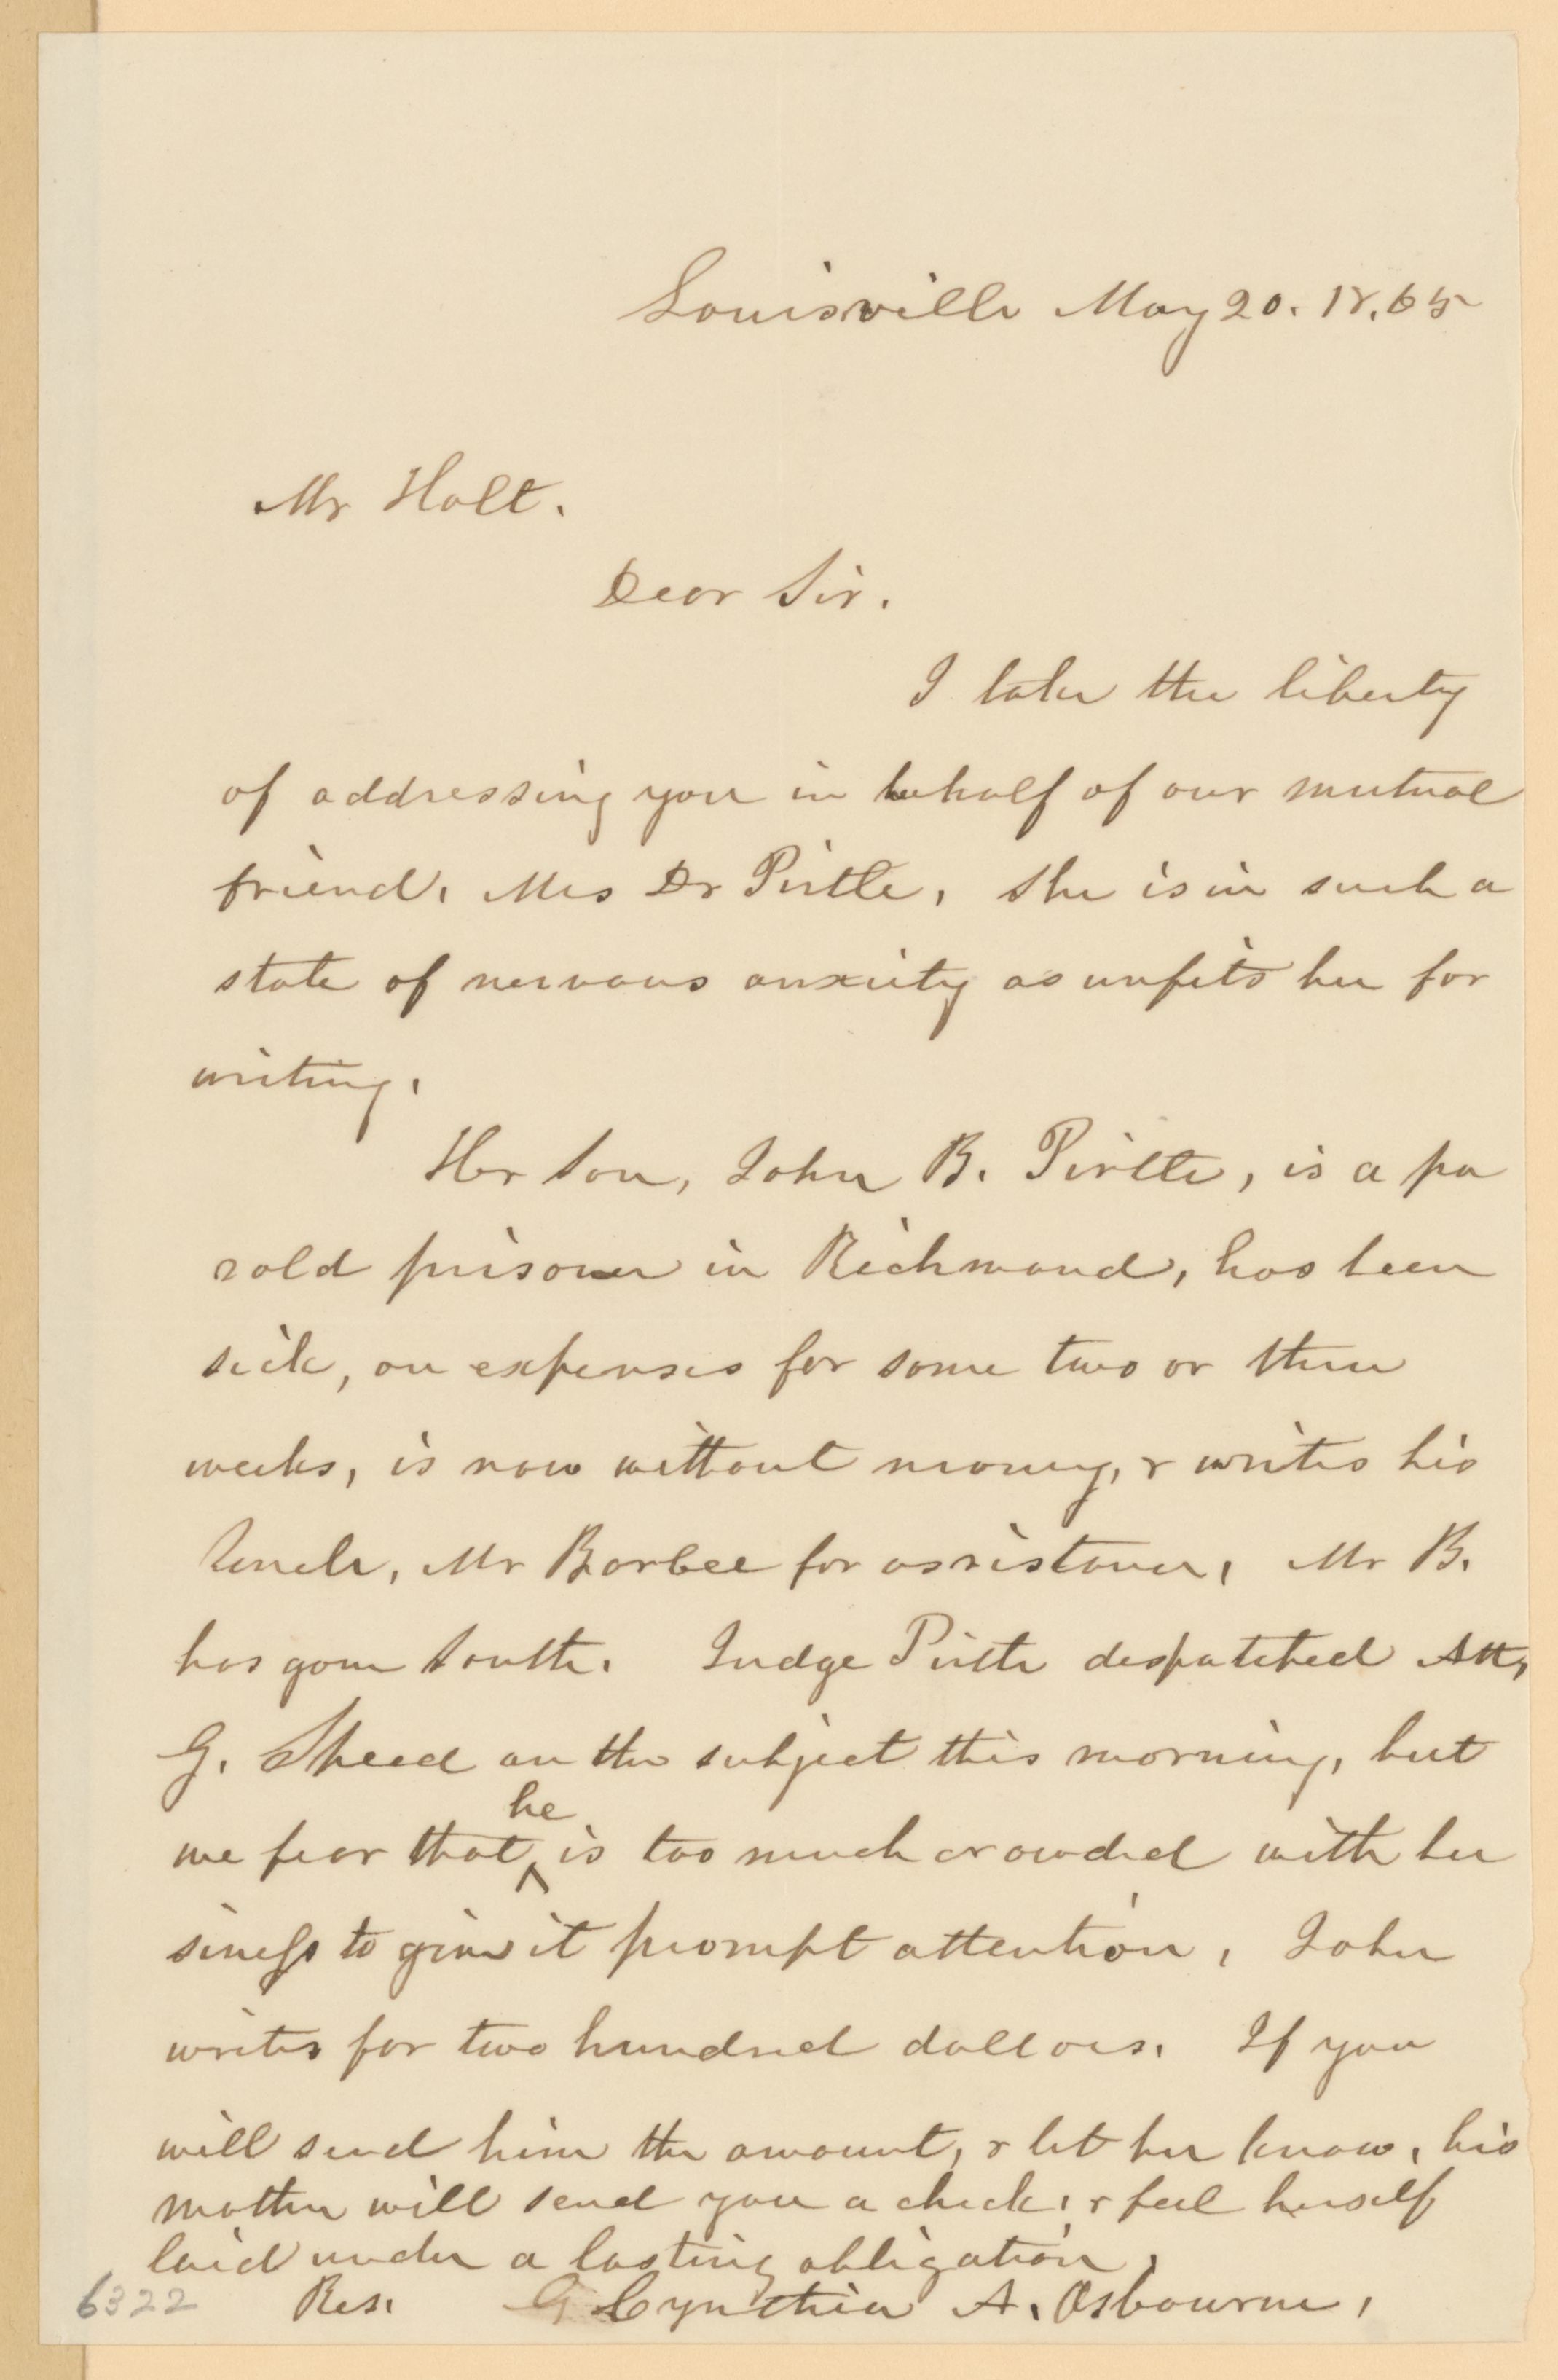 Louisville May 20. 18.65
Mr Holt.
Dear Sir.
I take the liberty
of addressing you in behalf of our mutual
friend, Mrs Dr Pirtle, she is in such a
state of nervous anxiety as unfits her for
writing.
Her son, John B. Pirtle, is a pa
rold prisoner in Richmond, has been
sick, on expenses for some two or three
weeks, is now without money, & writes his
Uncle, Mr Barbee for assistance, Mr B.
has gone South. Judge Pirtle despatched Att,
G. Speed on the subject this morning, but
we fear that he is too much crowded with bu
siness to give it prompt attention, John
writes for two hundred dollars. If you
will send him the amount, & let her know, his
mother will send you a check, & feel herself
laid under a lasting obligation,
Res. Cynthia A. Osbourne,
6322